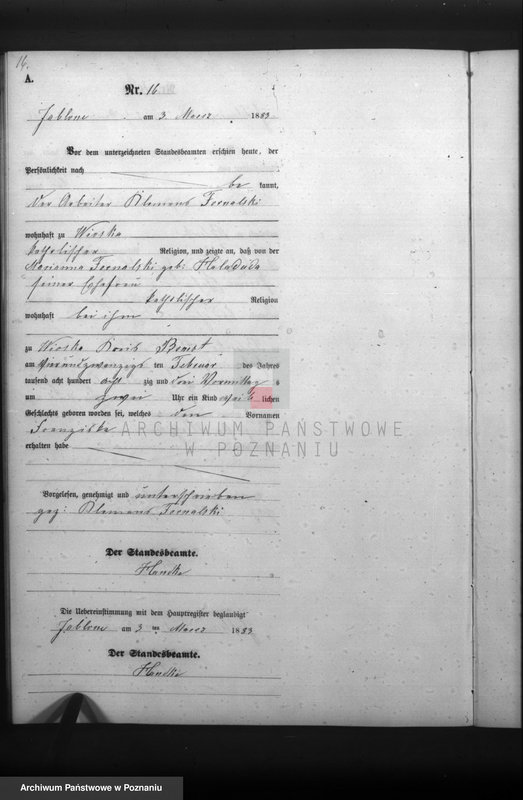 16.
A.
Nr. 16
Jablone am 3 Maerz 1883
Vor dem unterzeichneten Standesbeamten erschien heute, der
Persönlichkeit nach
be kannt,
der Arbeiter Klemens Tornalski
wohnhaft zu Wioska
katholischer Religion, und zeigte an, daß von der
Marianna Tornalski geb:
seiner Ehefrau
katholischer Religion
wohnhaft bei ihm
zu Wioska Kreis Bomst
am vierundzwanzigs ten Februar des Jahres
tausend acht hundert acht zig und drei Vormittag s
um zwei Uhr ein Kind weib lichen
Geschlechts geboren worden sei, welches den Vornamen
Franziska
erhalten habe
ARCHIWUM PAŃSTWOWE
W POZNANIU
Vorgelesen, genehmigt und unterschrieben
gez: Klemens Tornalski
Der Standesbeamte.
Handke
Die Uebereinstimmung mit dem Hauptregister beglaubigt
Jablone am 3 ten Maerz 1883
Der Standesbeamte.
Handke
Archiwum Państwowe w Poznaniu